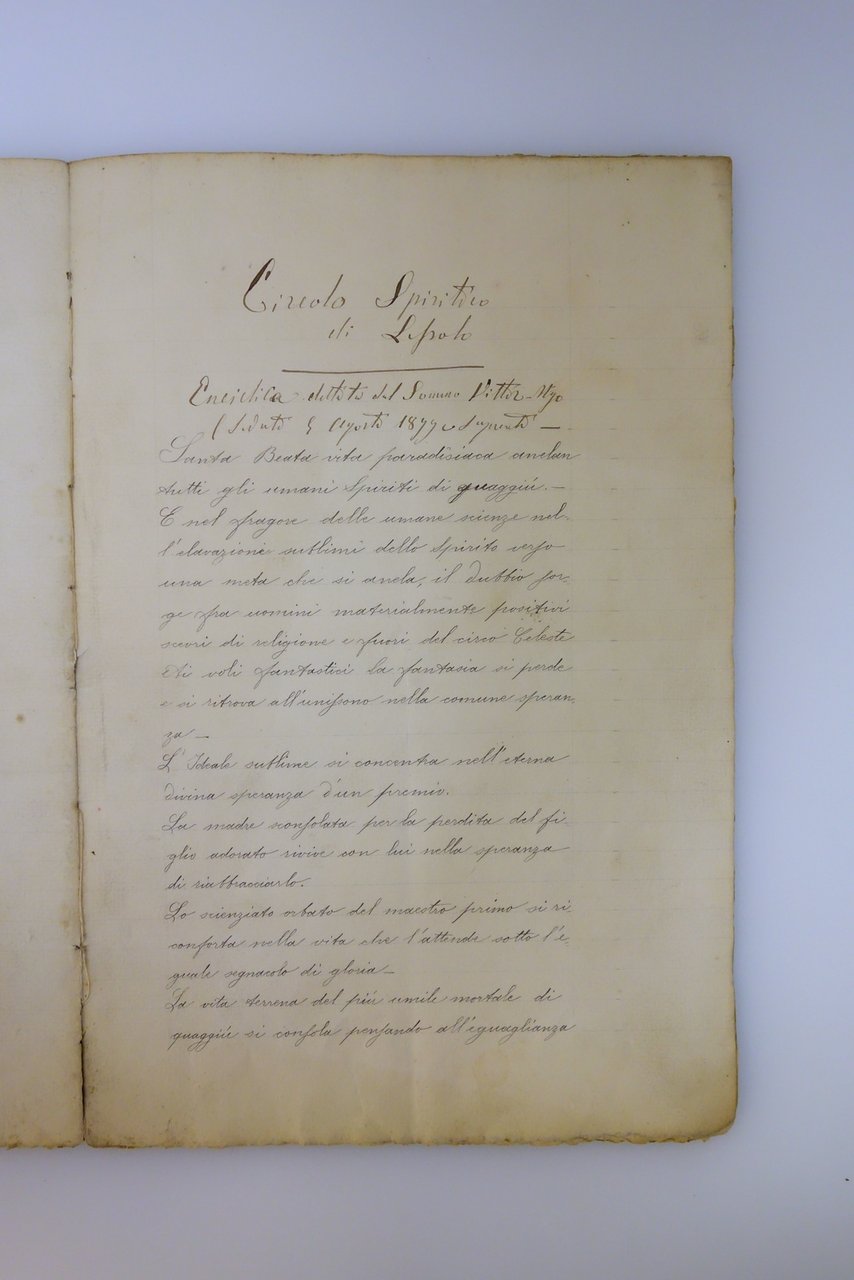 Circolo Spiritico
di
Enciclica dettata dal Sommo Vittor-Ugo
( Seduta 5 Agosto 1899 e seguenti —
Santa Beata vita paradisiaca anelan
tutti gli umani Spiriti di quaggiú. —
E nel fragore delle umane scienze nel-
l'elavazione sublimi dello Spirito verso
una meta che si anela, il dubbio sor-
ge fra uomini materialmente positivi
scevri di religione e fuori del circo Celeste
Ai voli fantastici la fantasia si perde
e si ritrova all'unissono nella comune speran-
za —
L'Ideale sublime si concentra nell'eterna
divina speranza d'un premio.
La madre sconsolata per la perdita del fi-
glio adorato rivive con lui nella speranza
di riabbracciarlo.
Lo scienziato orbato del maestro primo si ri-
conforta nella vita che l'attende sotto l'e-
guale segnacolo di gloria —
La vita terrena del piú umile mortale di
quaggiú si consola pensando all'eguaglianza